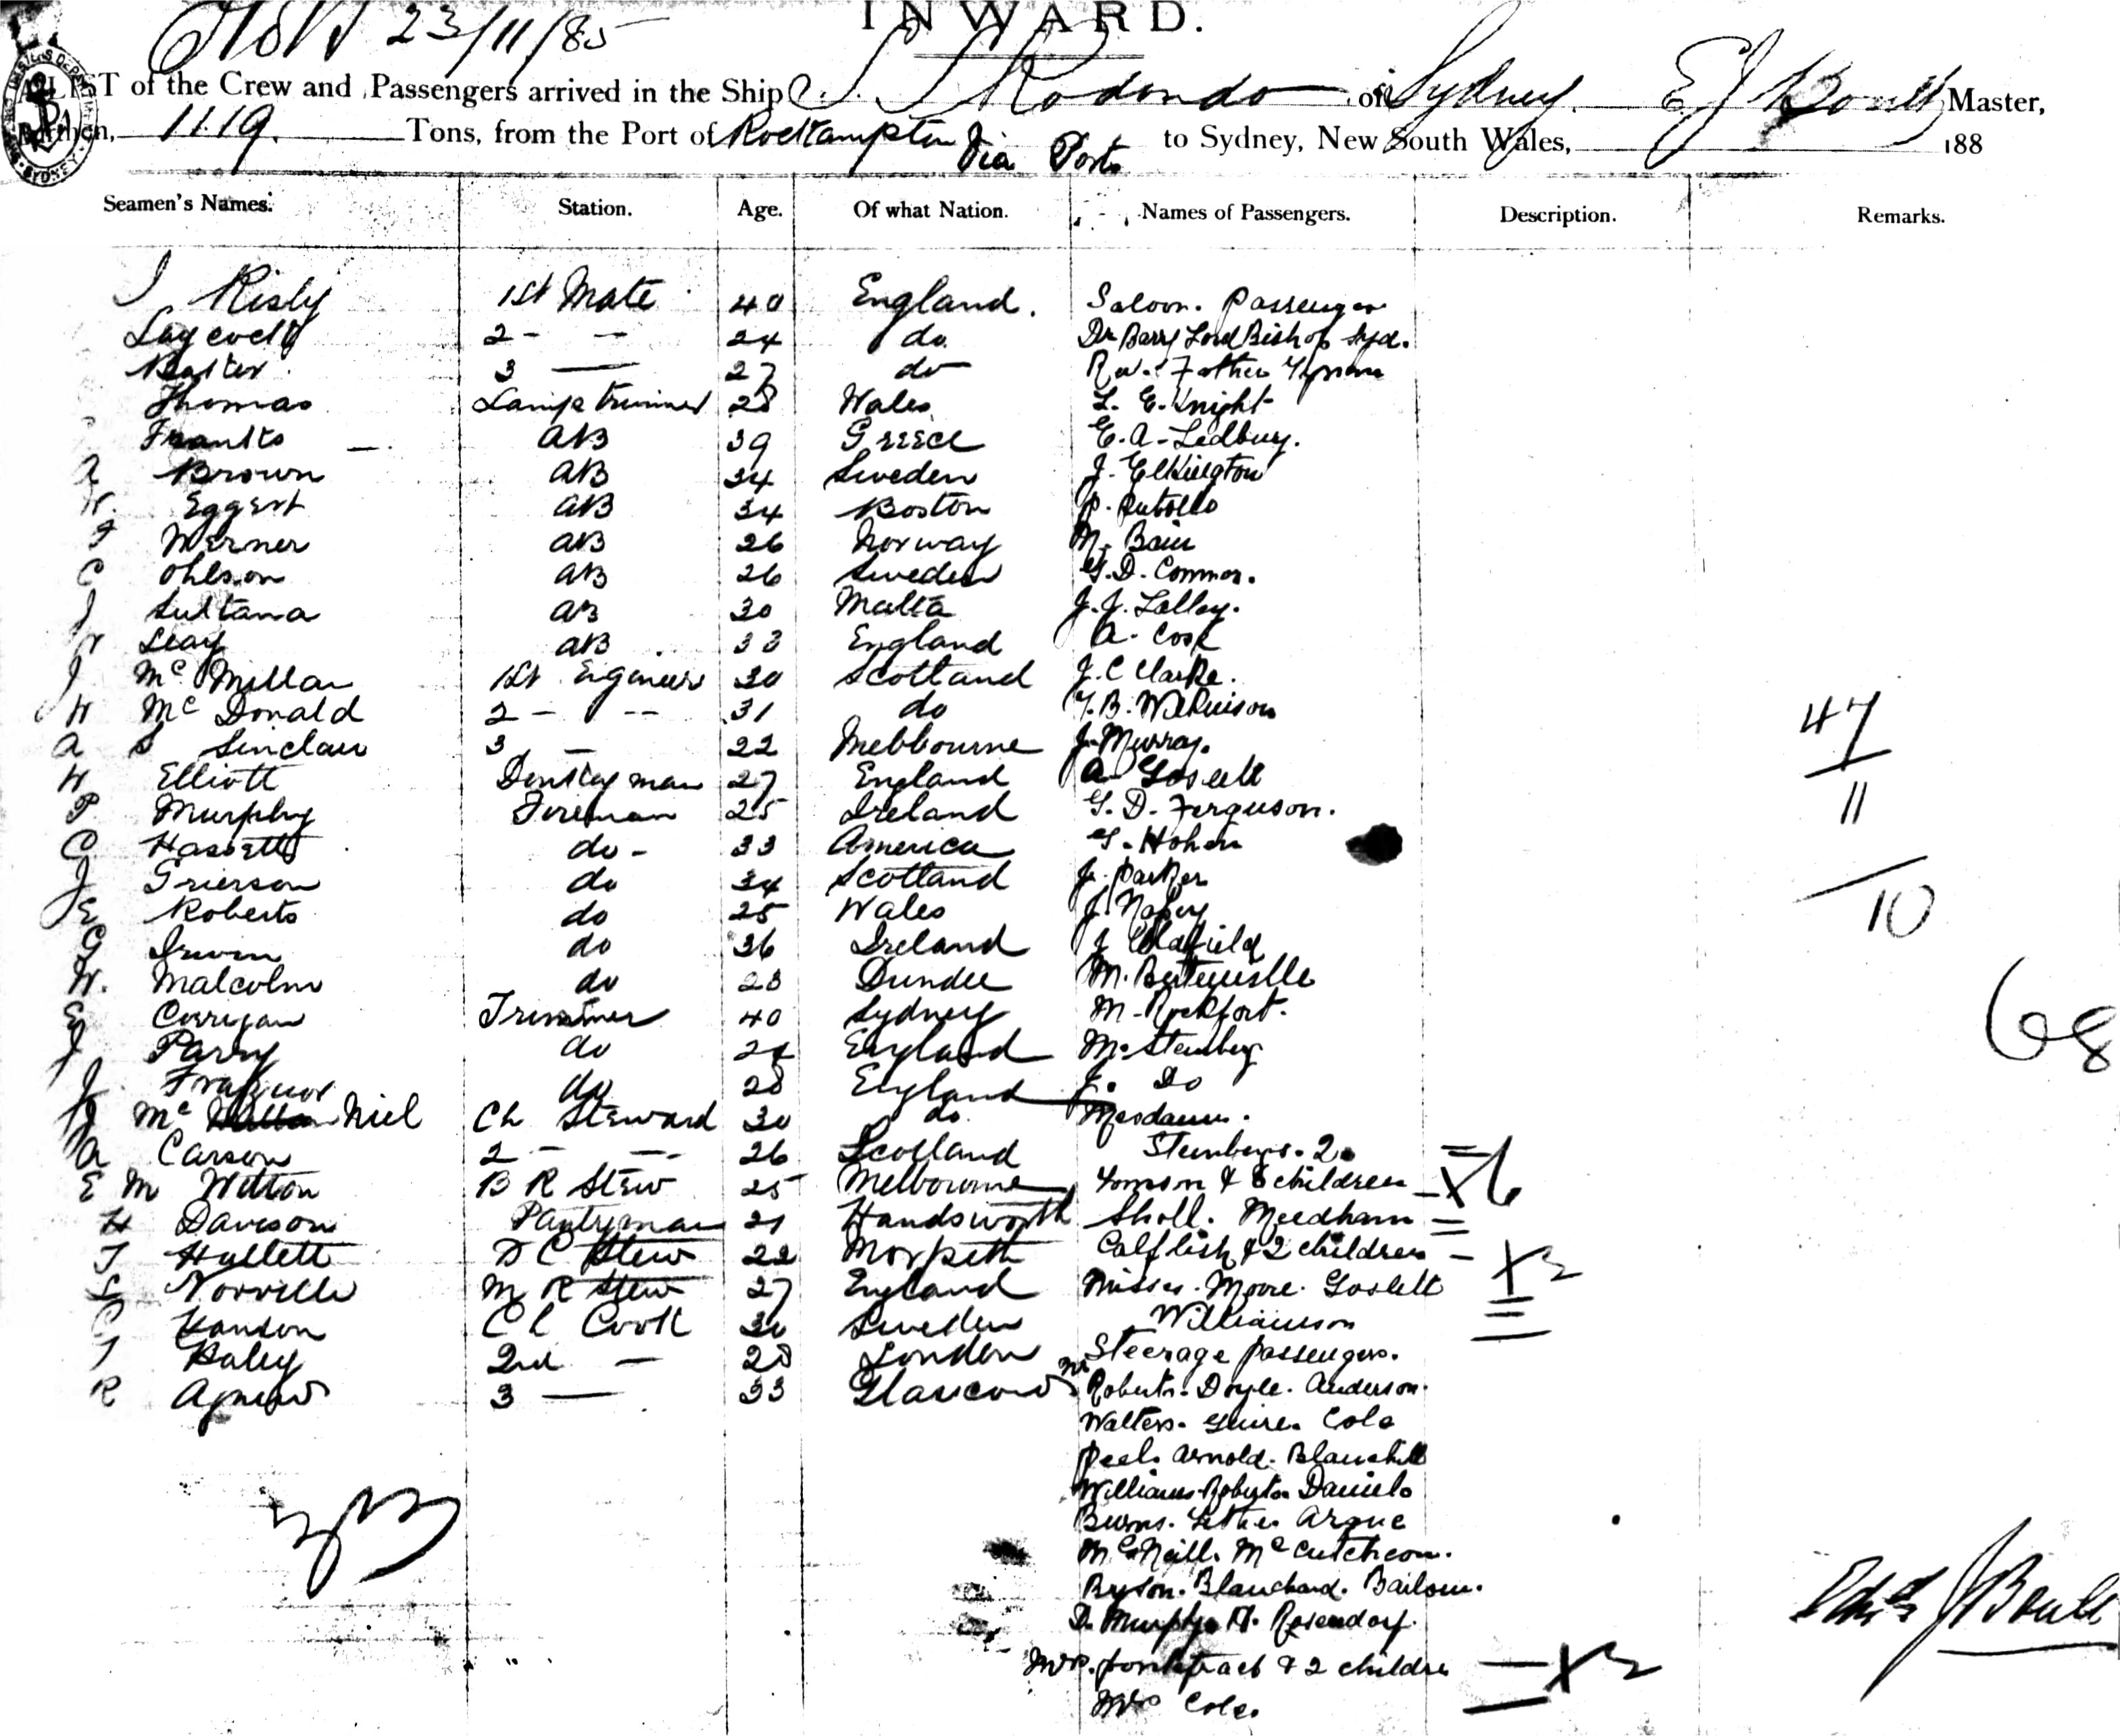 INWARD.
23/11/85
A LIST of the Crew and Passengers arrived in the Ship S. S. Rodondo of Sydney. E J Boult Master,
Burthen, 1119. Tons, from the Port of Rockhampton Via Ports to Sydney, New South Wales, 188
Seamen's Names. Station. Age. Of what Nation. Names of Passengers. Description. Remarks.
J Risby 1st Mate 40 England. Saloon. Passenger
2 - - 24 do Dr Barry Lord Bishop Syd.
3 — 27 do Rev. Father
Thomas Lamp trimmer 28 Wales L. E. Knight
AB 39 Greece E. A. Ledbury.
A Brown AB 34 Sweden J. Elkington
W. Eggert AB 34 Boston P.
F Werner AB 26 Norway M. Bain
C Ohlson AB 26 Sweden G. D. Connor.
J Sultana AB 30 Malta J. J. Lalley.
W Leay AB 33 England A. Cook
J Mc Millan 1st Egineer 30 Scotland J. C Clarke.
W Mc Donald 2 - -- 31 do
A S Sinclair 3 — 22 Melbourne J. Murray.
47
W Elliott Donkey man 27 England A Goslett
P Murphy Fireman 25 Ireland G. D. Ferguson.
11
C Hassett do - 33 America G. Hohen
J Grierson do 34 Scotland J. Parker
10
E Roberts do 25 Wales J.
G Irwin do 36 Ireland J Oldfield
W. Malcolm do 28 Dundee M.
E Corrigan Trimmer 40 Sydney M. Rockfort.
68
J Parry do 24 England M. Steinberg
J. do 28 England J. Do
J Mc Niel Ch Steward 30 do. Mesdames.
A Carson 2 - -- 26 Scotland Steinbergs. 2. =
E M Witton B R Stew 25 Melbourne & 6 children - x 6
H Davison Pantryman 21 Handsworth Sholl. Meedham =
T Hallett D C Stew 22 Morpeth & 2 children - x 2
L Norville M R Stew 27 England Misses. Moore. Goslett =
C Hanson Ch Cook 30 Sweden Williamson —
T Baley 2nd — 28 London Steerage passengers.
R Agnew 3 — 33 Glascow Mr Roberts. Doyle. Anderson.
Walters. Cole
Peel. Arnold.
Williams. Daniels
Burns. Argue
McNeill. McCutcheon.
Bryson. Blanchard.
D. Murphy. Rosendorf.
Mrs. & 2 childre = x 2
Mrs Coles
J Boult